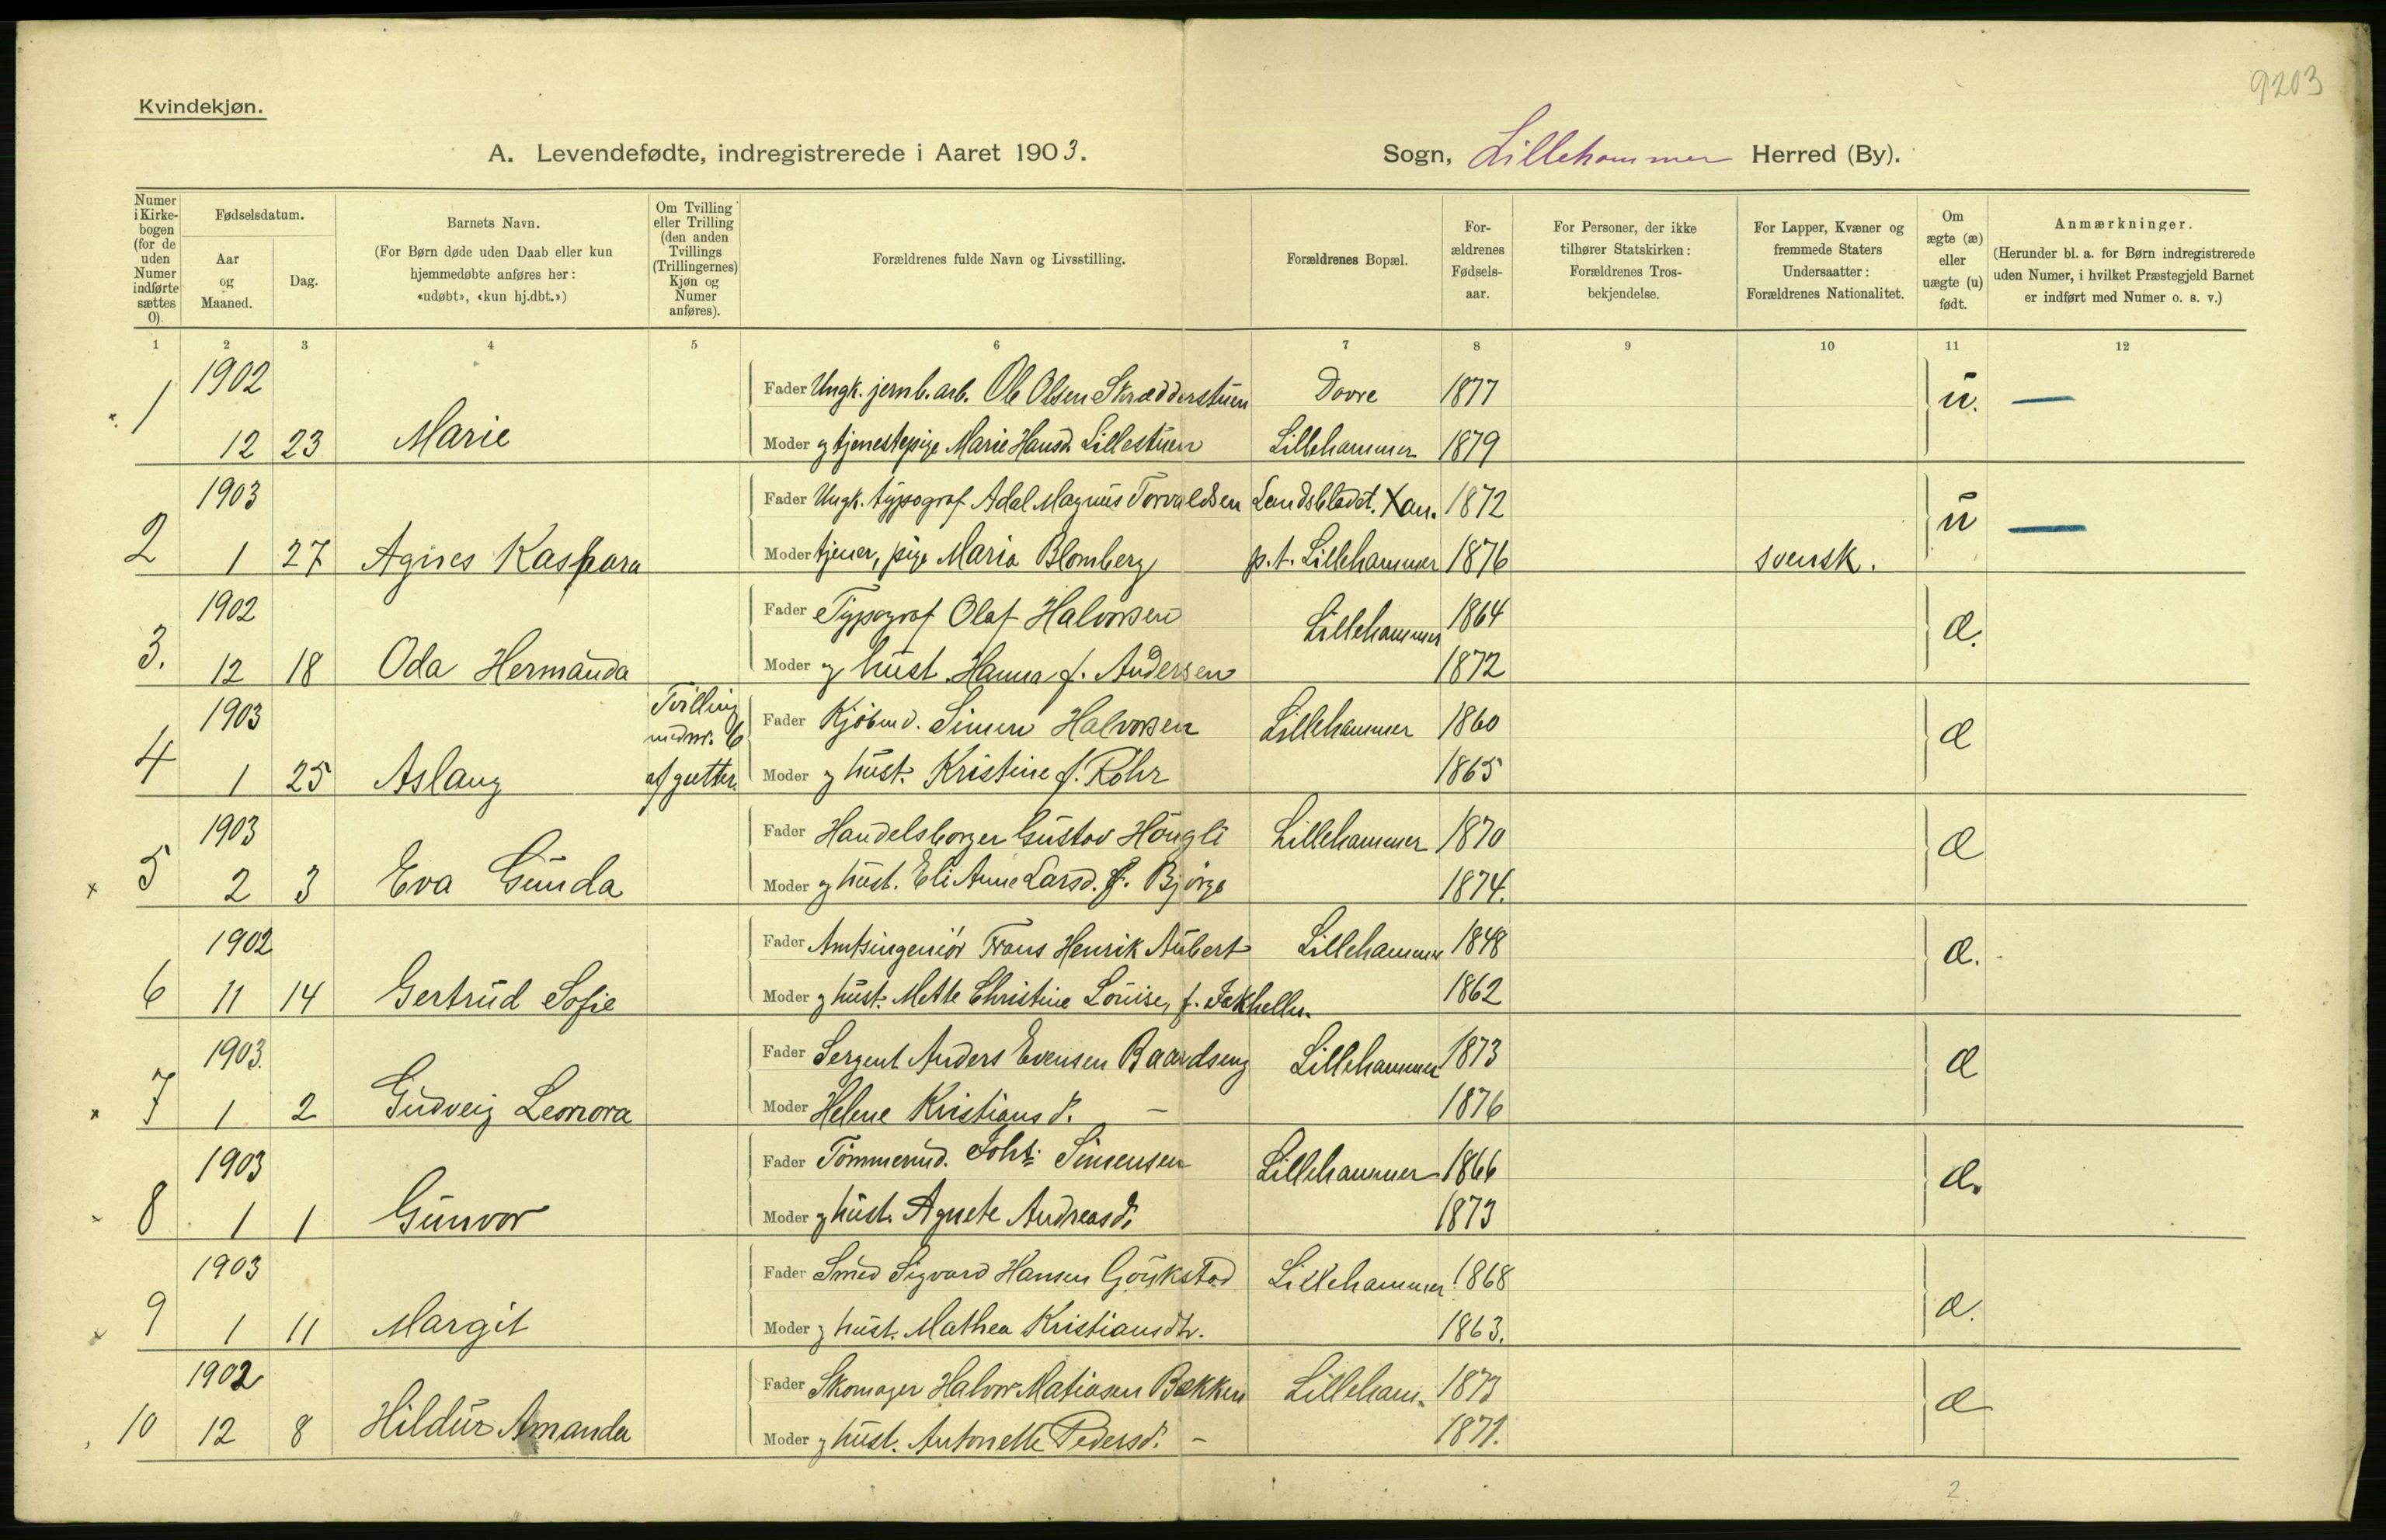 9203
Kvindekjøn.
A. Levendefødte, indregistrerede i Aaret 1903. Sogn, Lillehammer Herred (By).
Numer i Kirkebogen (for de uden Numer indførte sættes 0).
Fødselsdatum.
Aar og Maaned.
Dag.
Barnets Navn.
(For Børn døde uden Daab eller kun
hjemmedøbte anføres her:
«udøbt», «kun hj.dbt.»)
Om Tvilling eller Trilling (den anden Tvillings (Trillingernes) Kjøn og Numer anføres).
Forældrenes fulde Navn og Livsstilling.
Forældrenes Bopæl.
For-
ældrenes
Fødsels-
aar.
For Personer, der ikke
tilhører Statskirken:
Forældrenes Tros-
bekjendelse.
For Lapper, Kvæner og
fremmede Staters
Undersaatter:
Forældrenes Nationalitet.
Om
ægte (æ)
eller
uægte (u)
født.
Anmærkninger.
(Herunder bl. a. for Børn indregistrerede
uden Numer, i hvilket Præstegjeld Barnet
er indført med Numer o. s. v.)
1 2 3 4 5 6 7 8 9 10 11 12
1 1902 Fader Ungk. jernb. arb. Ole Olsen Skrædderstuen Dovre 1877 u. —
12 23 Marie Moder og tjenestepige Marie Hansd. Lillestuen Lillehammer 1879
1903 Fader Ungk. typograf Adal Magnus Torvaldsen Landsbladet. Xan. 1872 u —
2 1 27 Agnes Kaspara Moder tjener, pige Maria Blomberg p.t. Lillehammer 1876 svensk.
1902 Fader Typograf Olaf Halvorsen Lillehammer 1864 æ.
3. 12 18 Oda Hermanda Moder og hust. Hanna f. Andersen 1872
1903 Tvilling med nr. 6 Fader Kjøbmd. Simen Halvorsen Lillehammer 1860 æ
4 1 25 Aslaug af gutter. Moder og hust. Kristine f. Rohr 1865
1903 Fader Handelsborger Gustav Haugli Lillehammer 1870 æ
x 5 2 3 Eva Gunda Moder og hust. Eli Anne Larsd. f. Bjørge 1874.
1902 Fader Amtsingeniør Frans Henrik Aubert Lillehammer 1848 æ.
6 11 14 Gertrud Sofie Moder og hust. Mette Christine Louise, f. Jakhelln. 1862
1903. Fader Sergent Anders Evensen Baardseng Lillehammer 1873 æ
x 7 1 2 Gudveig Leonora Moder Helene Kristiansd. — 1876
1903 Fader Tømmermd. Johs. Simensen Lillehammer 1866 æ.
8 1 1 Gunvor Moder og hust. Agnete Andreasd. 1873
1903 Fader Smed Sigvard Hansen Lillehammer 1868 æ.
x 9 1 11 Margit Moder og hust. Mathea Kristiansdtr. 1863.
1902 Fader Skomager Halvor Matiasen Bækken Lilleham. 1873 æ
10 12 8 Hildur Amanda Moder og hust. Antonette Pedersd. — 1871.
2.